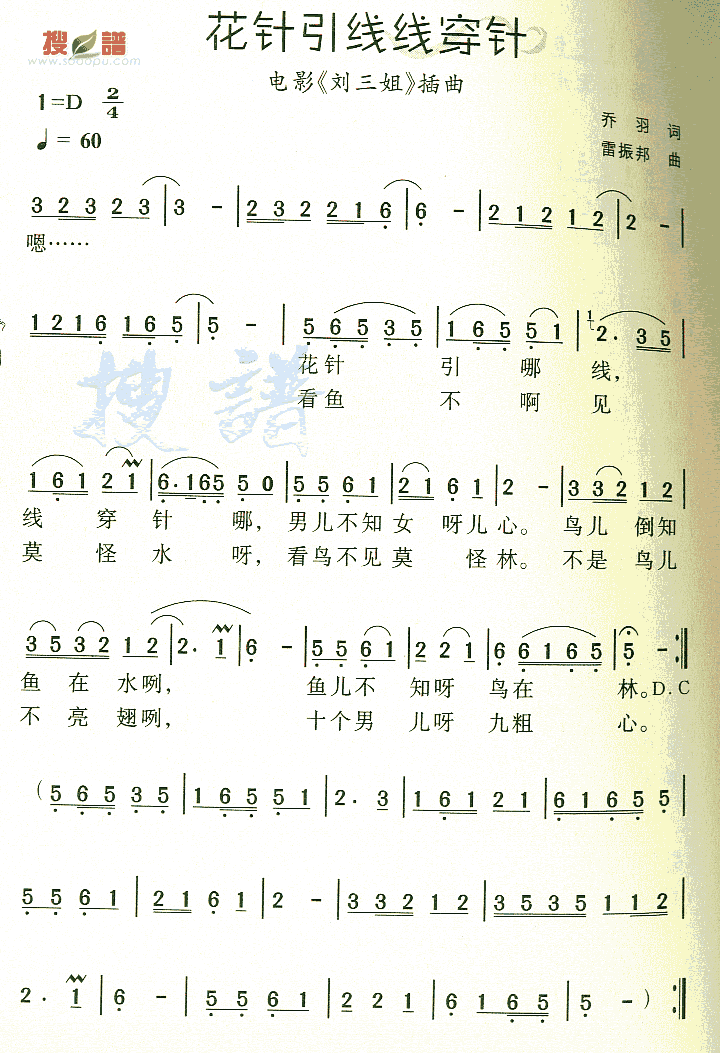 搜 譜
www.sooopu.com
花针引线线穿针
电影《刘三姐》插曲
1=D 2/4
♩= 60
乔 羽 词
雷振邦 曲
3 2 3 2 3 | 3 - | 2 3 2 2 2 1 6 | 6 - | 2 1 2 1 2 | 2 - |
嗯……
1 2 1 6 1 6 5 | 5 - | 5 6 5 3 5 | 1 6 5 5 1 | 2. 3 5
花针 引 哪 线,
看鱼 不 啊 见
搜 譜
1 6 1 2 1 | 6.165 5 0 | 5 5 6 1 | 2 1 6 1 | 2 - | 3 3 2 1 2
线 穿 针 哪, 男儿不知 女 呀儿心。 鸟儿 倒知
莫 怪 水 呀, 看鸟不见莫 怪林。 不是 鸟儿
3 5 3 2 1 2 | 2. 1 | 6 - | 5 5 6 1 | 2 2 1 | 6 6 1 6 5 | 5 - :|
鱼 在 水咧, 鱼儿不 知呀 鸟在 林。D.C
不 亮 翅咧, 十个男 儿呀 九粗 心。
( 5 6 5 3 5 | 1 6 5 5 1 | 2. 3 | 1 6 1 2 1 | 6 1 6 5 5 |
5 5 6 1 | 2 1 6 1 | 2 - | 3 3 2 1 2 | 3 5 3 5 1 1 2 |
2. 1 | 6 - | 5 5 6 1 | 2 2 1 | 6 1 6 5 | 5 - ) :|